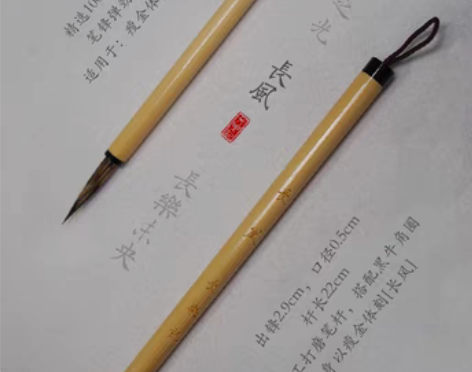 精选10
笔锋弹
适用于：瘦金体
之光
長風
長樂未央
長風
出锋2.9cm，口径0.5cm
杆长22cm
工打磨笔杆，搭配黑牛角圈
身以瘦金体刻[长风]